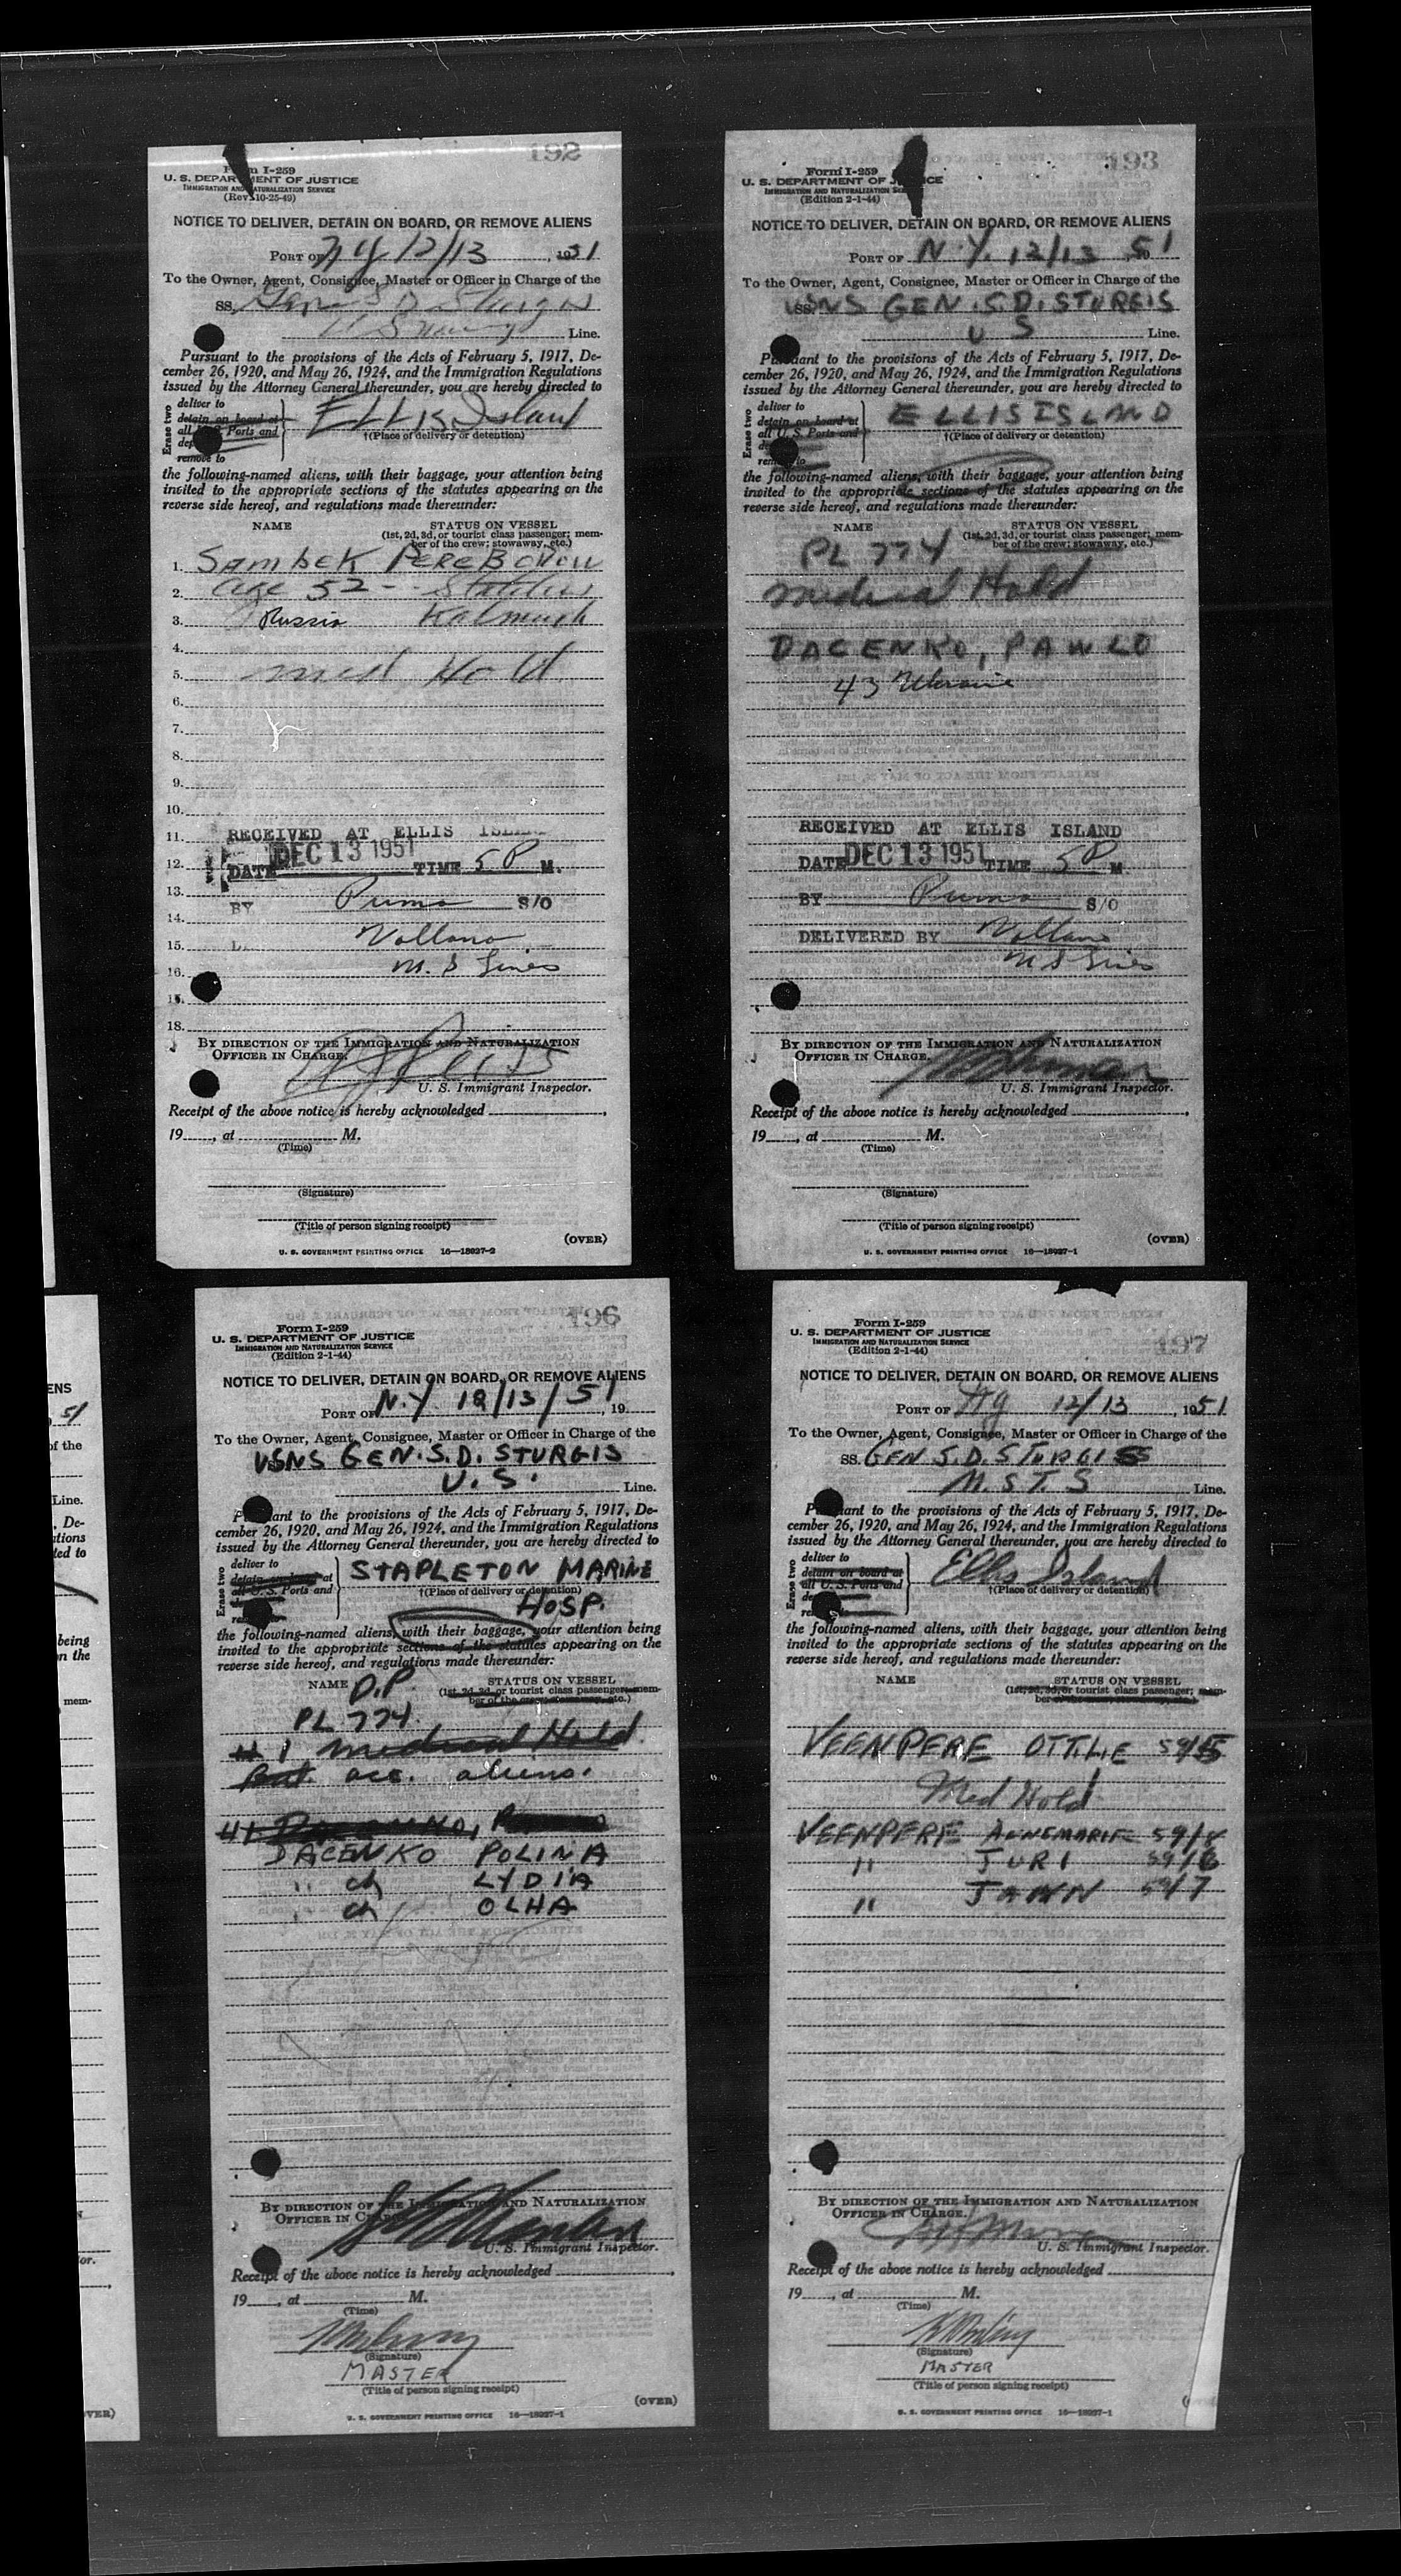 192
Form I-259
U. S. DEPARTMENT OF JUSTICE
IMMIGRATION AND NATURALIZATION SERVICE
(Rev. 10-25-49)
NOTICE TO DELIVER, DETAIN ON BOARD, OR REMOVE ALIENS
PORT OF N Y 12/13, 1951
To the Owner, Agent, Consignee, Master or Officer in Charge of the
SS. Gen S D Sturgis
U S Line.
Pursuant to the provisions of the Acts of February 5, 1917, De-
cember 26, 1920, and May 26, 1924, and the Immigration Regulations
issued by the Attorney General thereunder, you are hereby directed to
Erase two
deliver to
detain on board at
all U. S. Ports and
remove to
ELLIS Island
†(Place of delivery or detention)
the following-named aliens, with their baggage, your attention being
invited to the appropriate sections of the statutes appearing on the
reverse side hereof, and regulations made thereunder:
NAME STATUS ON VESSEL
(1st, 2d, 3d, or tourist class passenger; mem-
ber of the crew; stowaway, etc.)
1. SAMBEK
2. age 52 -
3. Russia Kalmuck
4.
5. med Hold
6.
7.
8.
9.
10.
11. RECEIVED AT ELLIS ISLAND
12. DATE DEC 13 1951 TIME 5 P M.
13. BY Primo S/O
14.
15. Vollano
16. M. S Lines
18.
BY DIRECTION OF THE IMMIGRATION AND NATURALIZATION
OFFICER IN CHARGE.
U. S. Immigrant Inspector.
Receipt of the above notice is hereby acknowledged
19 , at M.
(Time)
(Signature)
(Title of person signing receipt)
(OVER)
U. S. GOVERNMENT PRINTING OFFICE 16—18027-2
193
Form I-259
U. S. DEPARTMENT OF JUSTICE
IMMIGRATION AND NATURALIZATION SERVICE
(Edition 2-1-44)
NOTICE TO DELIVER, DETAIN ON BOARD, OR REMOVE ALIENS
PORT OF N.Y. 12/13, 51
To the Owner, Agent, Consignee, Master or Officer in Charge of the
SS. USNS GEN. S.D. STURGIS
U S Line.
Pursuant to the provisions of the Acts of February 5, 1917, De-
cember 26, 1920, and May 26, 1924, and the Immigration Regulations
issued by the Attorney General thereunder, you are hereby directed to
Erase two
deliver to
detain on board at
all U. S. Ports and
remove to
ELLIS ISLAND
†(Place of delivery or detention)
the following-named aliens, with their baggage, your attention being
invited to the appropriate sections of the statutes appearing on the
reverse side hereof, and regulations made thereunder:
NAME STATUS ON VESSEL
(1st, 2d, 3d, or tourist class passenger; mem-
ber of the crew; stowaway, etc.)
PL 774
medical Hold
DACENKO, PAWLO
43 Ukraine
RECEIVED AT ELLIS ISLAND
DATE DEC 13 1951 TIME 5 P M
BY Primo S/O
DELIVERED BY Vollano
M S Lines
BY DIRECTION OF THE IMMIGRATION AND NATURALIZATION
OFFICER IN CHARGE.
U. S. Immigrant Inspector.
Receipt of the above notice is hereby acknowledged
19 , at M.
(Time)
(Signature)
(Title of person signing receipt)
(OVER)
U. S. GOVERNMENT PRINTING OFFICE 16—18027-1
ENS
51
of the
Line.
, De-
ations
ted to
being
on the
mem-
or.
VER)
196
Form I-259
U. S. DEPARTMENT OF JUSTICE
IMMIGRATION AND NATURALIZATION SERVICE
(Edition 2-1-44)
NOTICE TO DELIVER, DETAIN ON BOARD, OR REMOVE ALIENS
PORT OF N.Y. 12/13/51, 19
To the Owner, Agent, Consignee, Master or Officer in Charge of the
USNS GEN. S.D. STURGIS
U.S. Line.
Pursuant to the provisions of the Acts of February 5, 1917, De-
cember 26, 1920, and May 26, 1924, and the Immigration Regulations
issued by the Attorney General thereunder, you are hereby directed to
Erase two
deliver to
detain on board at
all U. S. Ports and
STAPLETON MARINE
†(Place of delivery or detention)
HOSP.
the following-named aliens, with their baggage, your attention being
invited to the appropriate sections of the statutes appearing on the
reverse side hereof, and regulations made thereunder:
NAME D.P. STATUS ON VESSEL
(1st, 2d, 3d, or tourist class passenger; mem-
ber of the crew; stowaway, etc.)
PL 774.
# 1 medical Hold.
acc. aliens.
DACENKO POLINA
" ch LYDIA
" ch OLHA
BY DIRECTION OF THE IMMIGRATION AND NATURALIZATION
OFFICER IN CHARGE.
U. S. Immigrant Inspector.
Receipt of the above notice is hereby acknowledged
19 , at M.
(Time)
(Signature)
MASTER
(Title of person signing receipt)
(OVER)
U. S. GOVERNMENT PRINTING OFFICE 16—18027-1
197
Form I-259
U. S. DEPARTMENT OF JUSTICE
IMMIGRATION AND NATURALIZATION SERVICE
(Edition 2-1-44)
NOTICE TO DELIVER, DETAIN ON BOARD, OR REMOVE ALIENS
PORT OF NY 12/13, 1951
To the Owner, Agent, Consignee, Master or Officer in Charge of the
SS. GEN S.D. STURGIS
M.S.T.S Line.
Pursuant to the provisions of the Acts of February 5, 1917, De-
cember 26, 1920, and May 26, 1924, and the Immigration Regulations
issued by the Attorney General thereunder, you are hereby directed to
Erase two
deliver to
detain on board at
all U. S. Ports and
Ellis Island
†(Place of delivery or detention)
the following-named aliens, with their baggage, your attention being
invited to the appropriate sections of the statutes appearing on the
reverse side hereof, and regulations made thereunder:
NAME STATUS ON VESSEL
(1st, 2d, 3d, or tourist class passenger; mem-
ber of the crew; stowaway, etc.)
VEENPERE OTTILIE 59/5
Med Hold
VEENPERE ANNEMARIE 59/8
" JURI 59/6
" JAAN 59/7
BY DIRECTION OF THE IMMIGRATION AND NATURALIZATION
OFFICER IN CHARGE.
U. S. Immigrant Inspector.
Receipt of the above notice is hereby acknowledged
19 , at M.
(Time)
(Signature)
MASTER
(Title of person signing receipt)
U. S. GOVERNMENT PRINTING OFFICE 16—18027-1